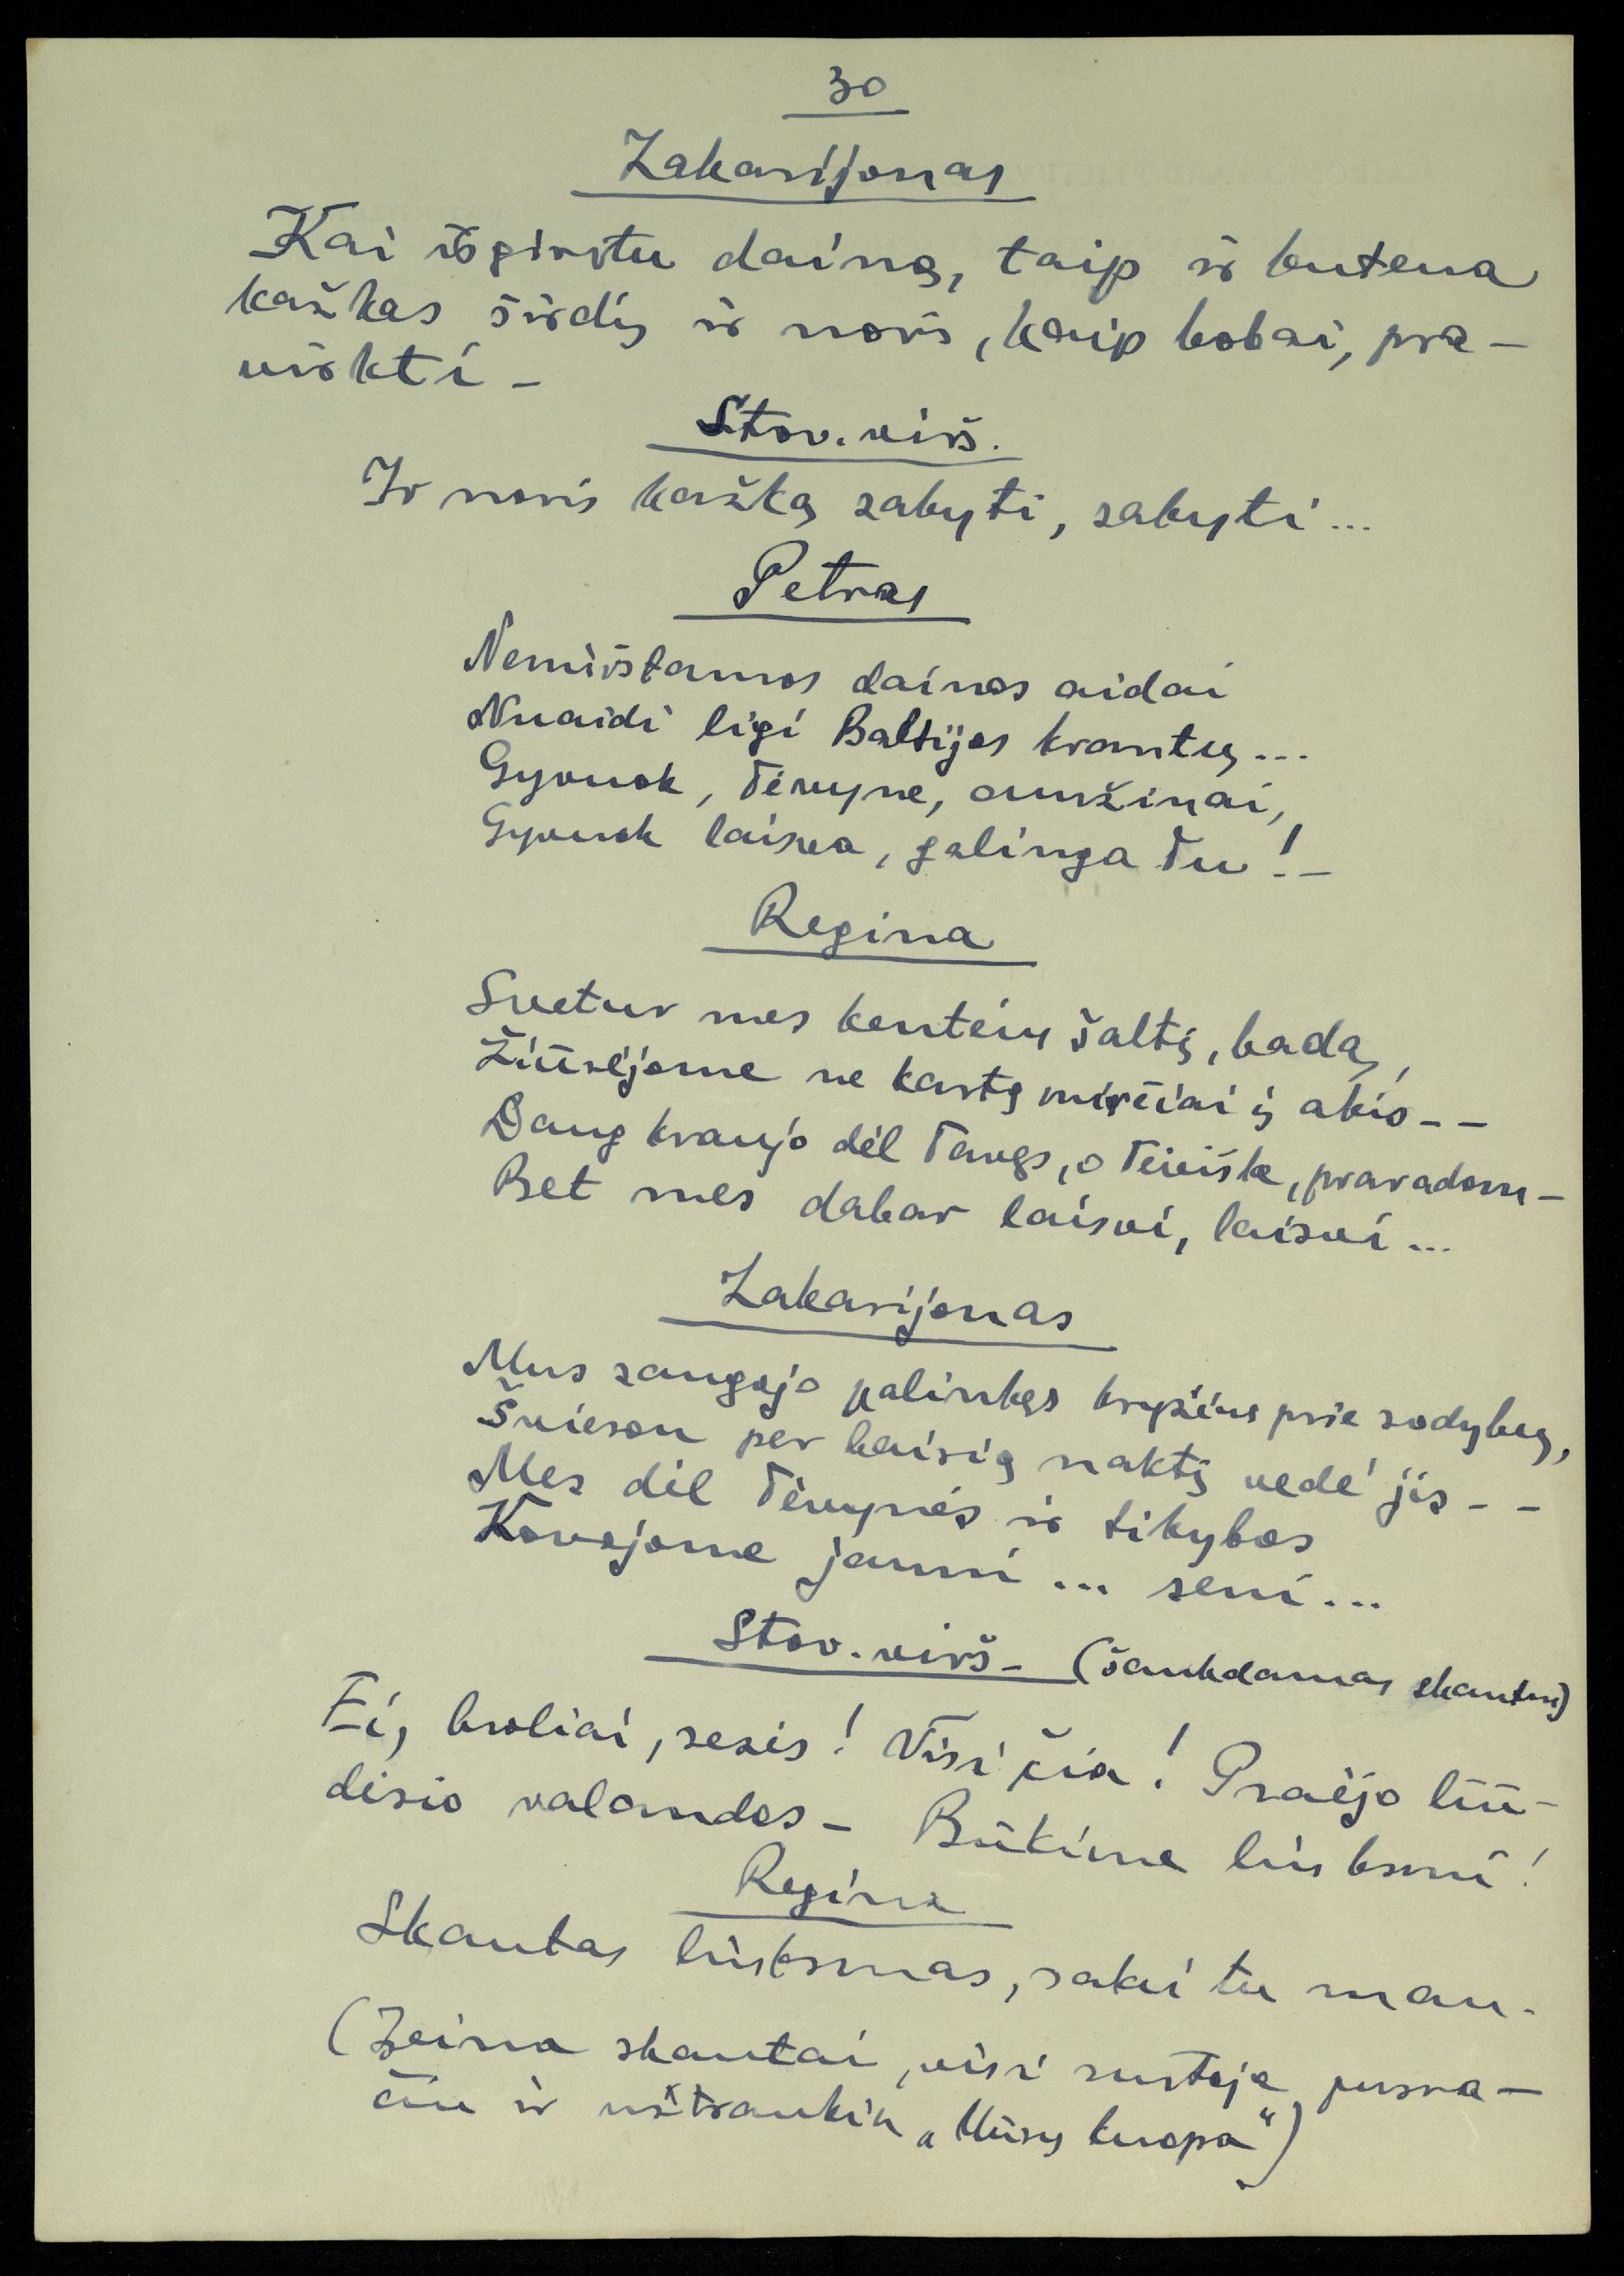 30
Zakarijonas
Kai išgirstu dainą, taip ir kutena
kažkas širdį ir noris, kaip bobai, pra-
virkti -
Stov. virš.
Ir noris kažką sakyti, sakyti...
Petras
Nemirštamos dainos aidai
Nuaidi ligi Baltijos krantų...
Gyvuok, Tėvyne, amžinai,
Gyvuok laisva, galinga Tu! -
Regina
Svetur mes kentėm šaltį, badą,
Žiūrėjome ne kartą mirčiai į akis - -
Daug kraujo dėl Tavęs, o Tėviške, praradom -
Bet mes dabar laisvi, laisvi...
Zakarijonas
Mus saugojo palinkęs kryžius prie sodybų,
Švieson per baisią naktį vedė jis - -
Mes dėl Tėvynės ir tikybos
Kovojome jauni... seni...
Stov. virš - (šaukdamas skautus)
Ei, broliai, sesės! Visi čia! Praėjo liū-
desio valandos - Būkime linksmi!
Regina
Skautas linksmas, sakai tu man.
(Įeina skautai, visi sustoja pusra-
čiu ir užtraukia „Mūsų kuopa“)